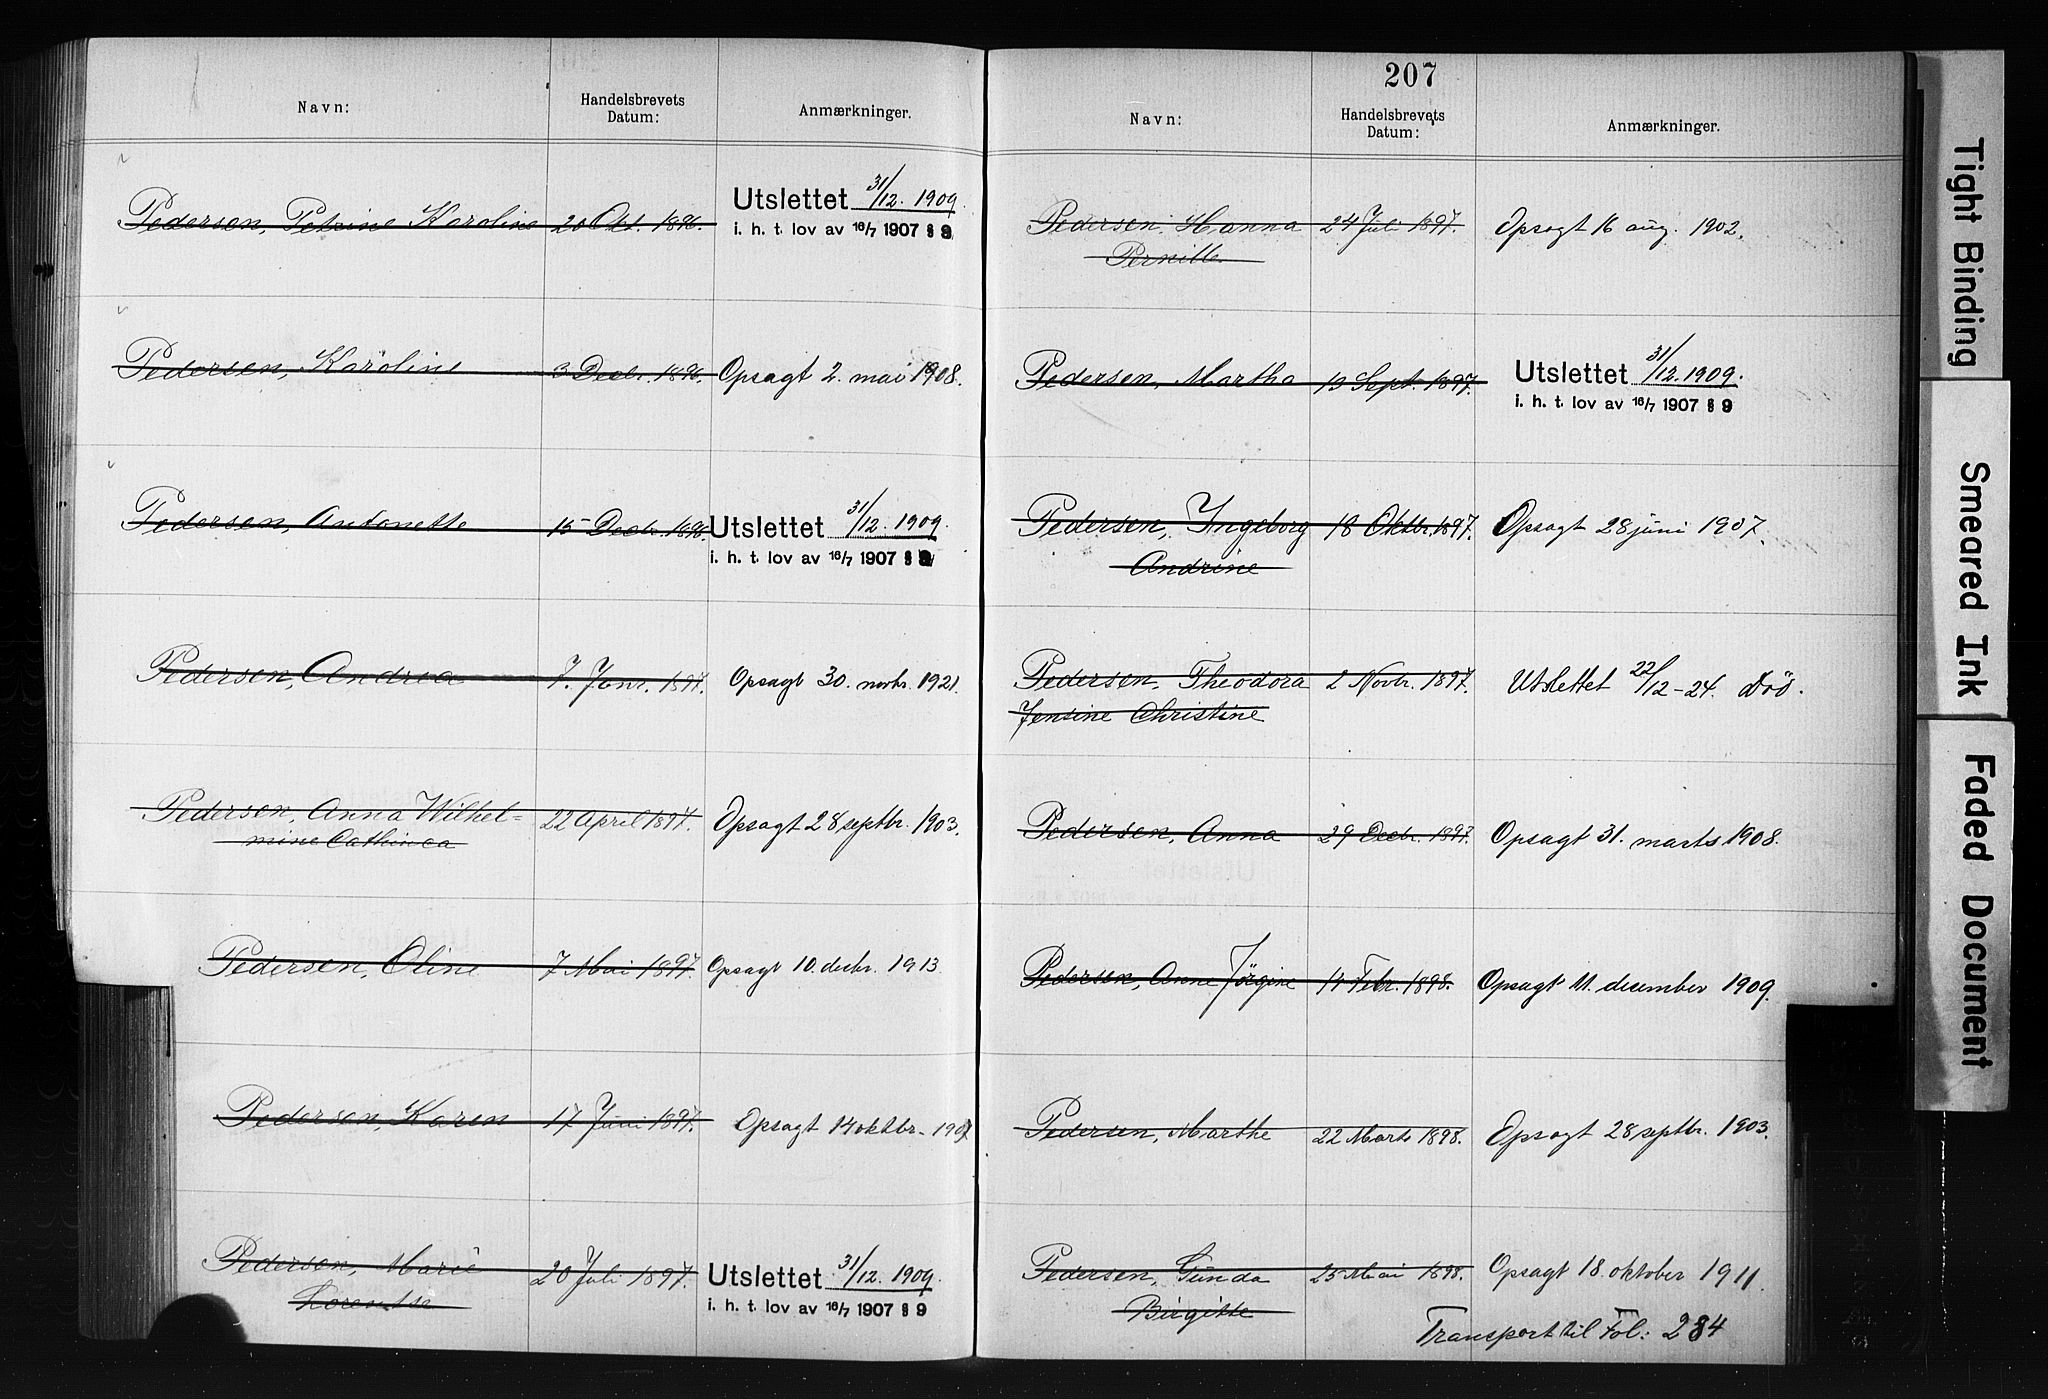 Navn:
Handelsbrevets
Datum:
Anmærkninger.
Pedersen, Petrine Karoline 20 Okt. 1896. Utslettet 31/12. 1909.
i. h. t. lov av 16/7 1907 § 9
Pedersen, Karoline 3 Decbr. 1896. Opsagt 2. mai 1908.
Pedersen, Antonette 15 Decbr. 1896. Utslettet 31/12. 1909.
i. h. t. lov av 16/7 1907 § 9
Pedersen, Andrea 7. Janr. 1897. Opsagt 30. novbr. 1921.
Pedersen, Anna Wilhel=
mine Cathinca
22 April 1897. Opsagt 28 septbr. 1903.
Pedersen, Oline 7 Mai 1897. Opsagt 10. decbr. 1913.
Pedersen, Karen 17 Juni 1897. Opsagt 14 oktbr. 1907
Pedersen, Marie
Lorentse
20 Juli 1897. Utslettet 31/12. 1909.
i. h. t. lov av 16/7 1907 § 9
207
Navn:
Handelsbrevets
Datum:
Anmærkninger.
Pedersen, Hanna
Pernille
24 Juli 1897. Opsagt 16 aug. 1902.
Pedersen, Martha 13 Sept. 1897. Utslettet 31/12. 1909.
i. h. t. lov av 16/7 1907 § 9
Pedersen, Ingeborg
Andrine
18 Oktbr. 1897. Opsagt 28 juni 1907.
Pedersen, Theodora
Jensine Christine
2 Novbr. 1897. Utslettet 22/12-24. Död.
Pedersen, Anna 29 Decbr. 1897. Opsagt 31. marts 1908.
Pedersen, Anne Jörgine 14 Febr. 1898. Opsagt 11. desember 1909.
Pedersen, Marthe 22 Marts 1898. Opsagt 28 septbr. 1903.
Pedersen, Gunda
Birgitte
25 Mai 1898. Opsagt 18. oktober 1911.
Transport til Fol: 284
Tight Binding
Smeared Ink
Faded Document